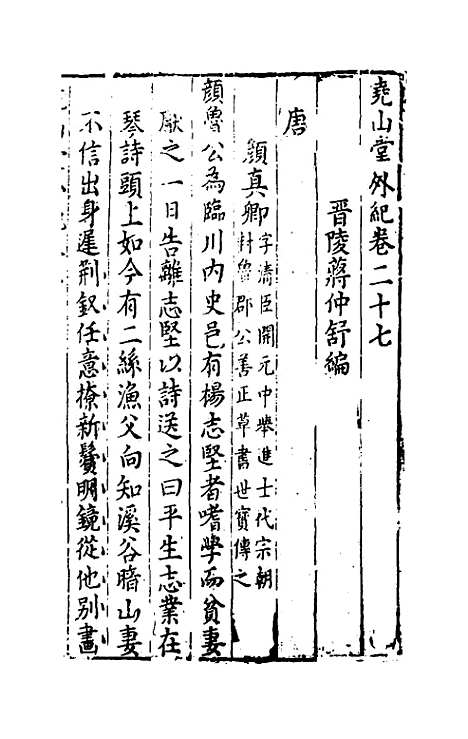 堯山堂外紀卷二十七
晉陵蔣仲舒編
唐
顔真卿字清臣開元中舉進士代宗朝
封魯郡公善正草書世寶傳之
顔魯公為臨川内史邑有楊志堅者嗜學而貧妻
厭之一日告離志堅以詩送之曰平生志業在
琴詩頭上如今有二絲漁父向知溪谷暗山妻
不信出身遲荆釵任意撩新鬢明鏡從他別畫